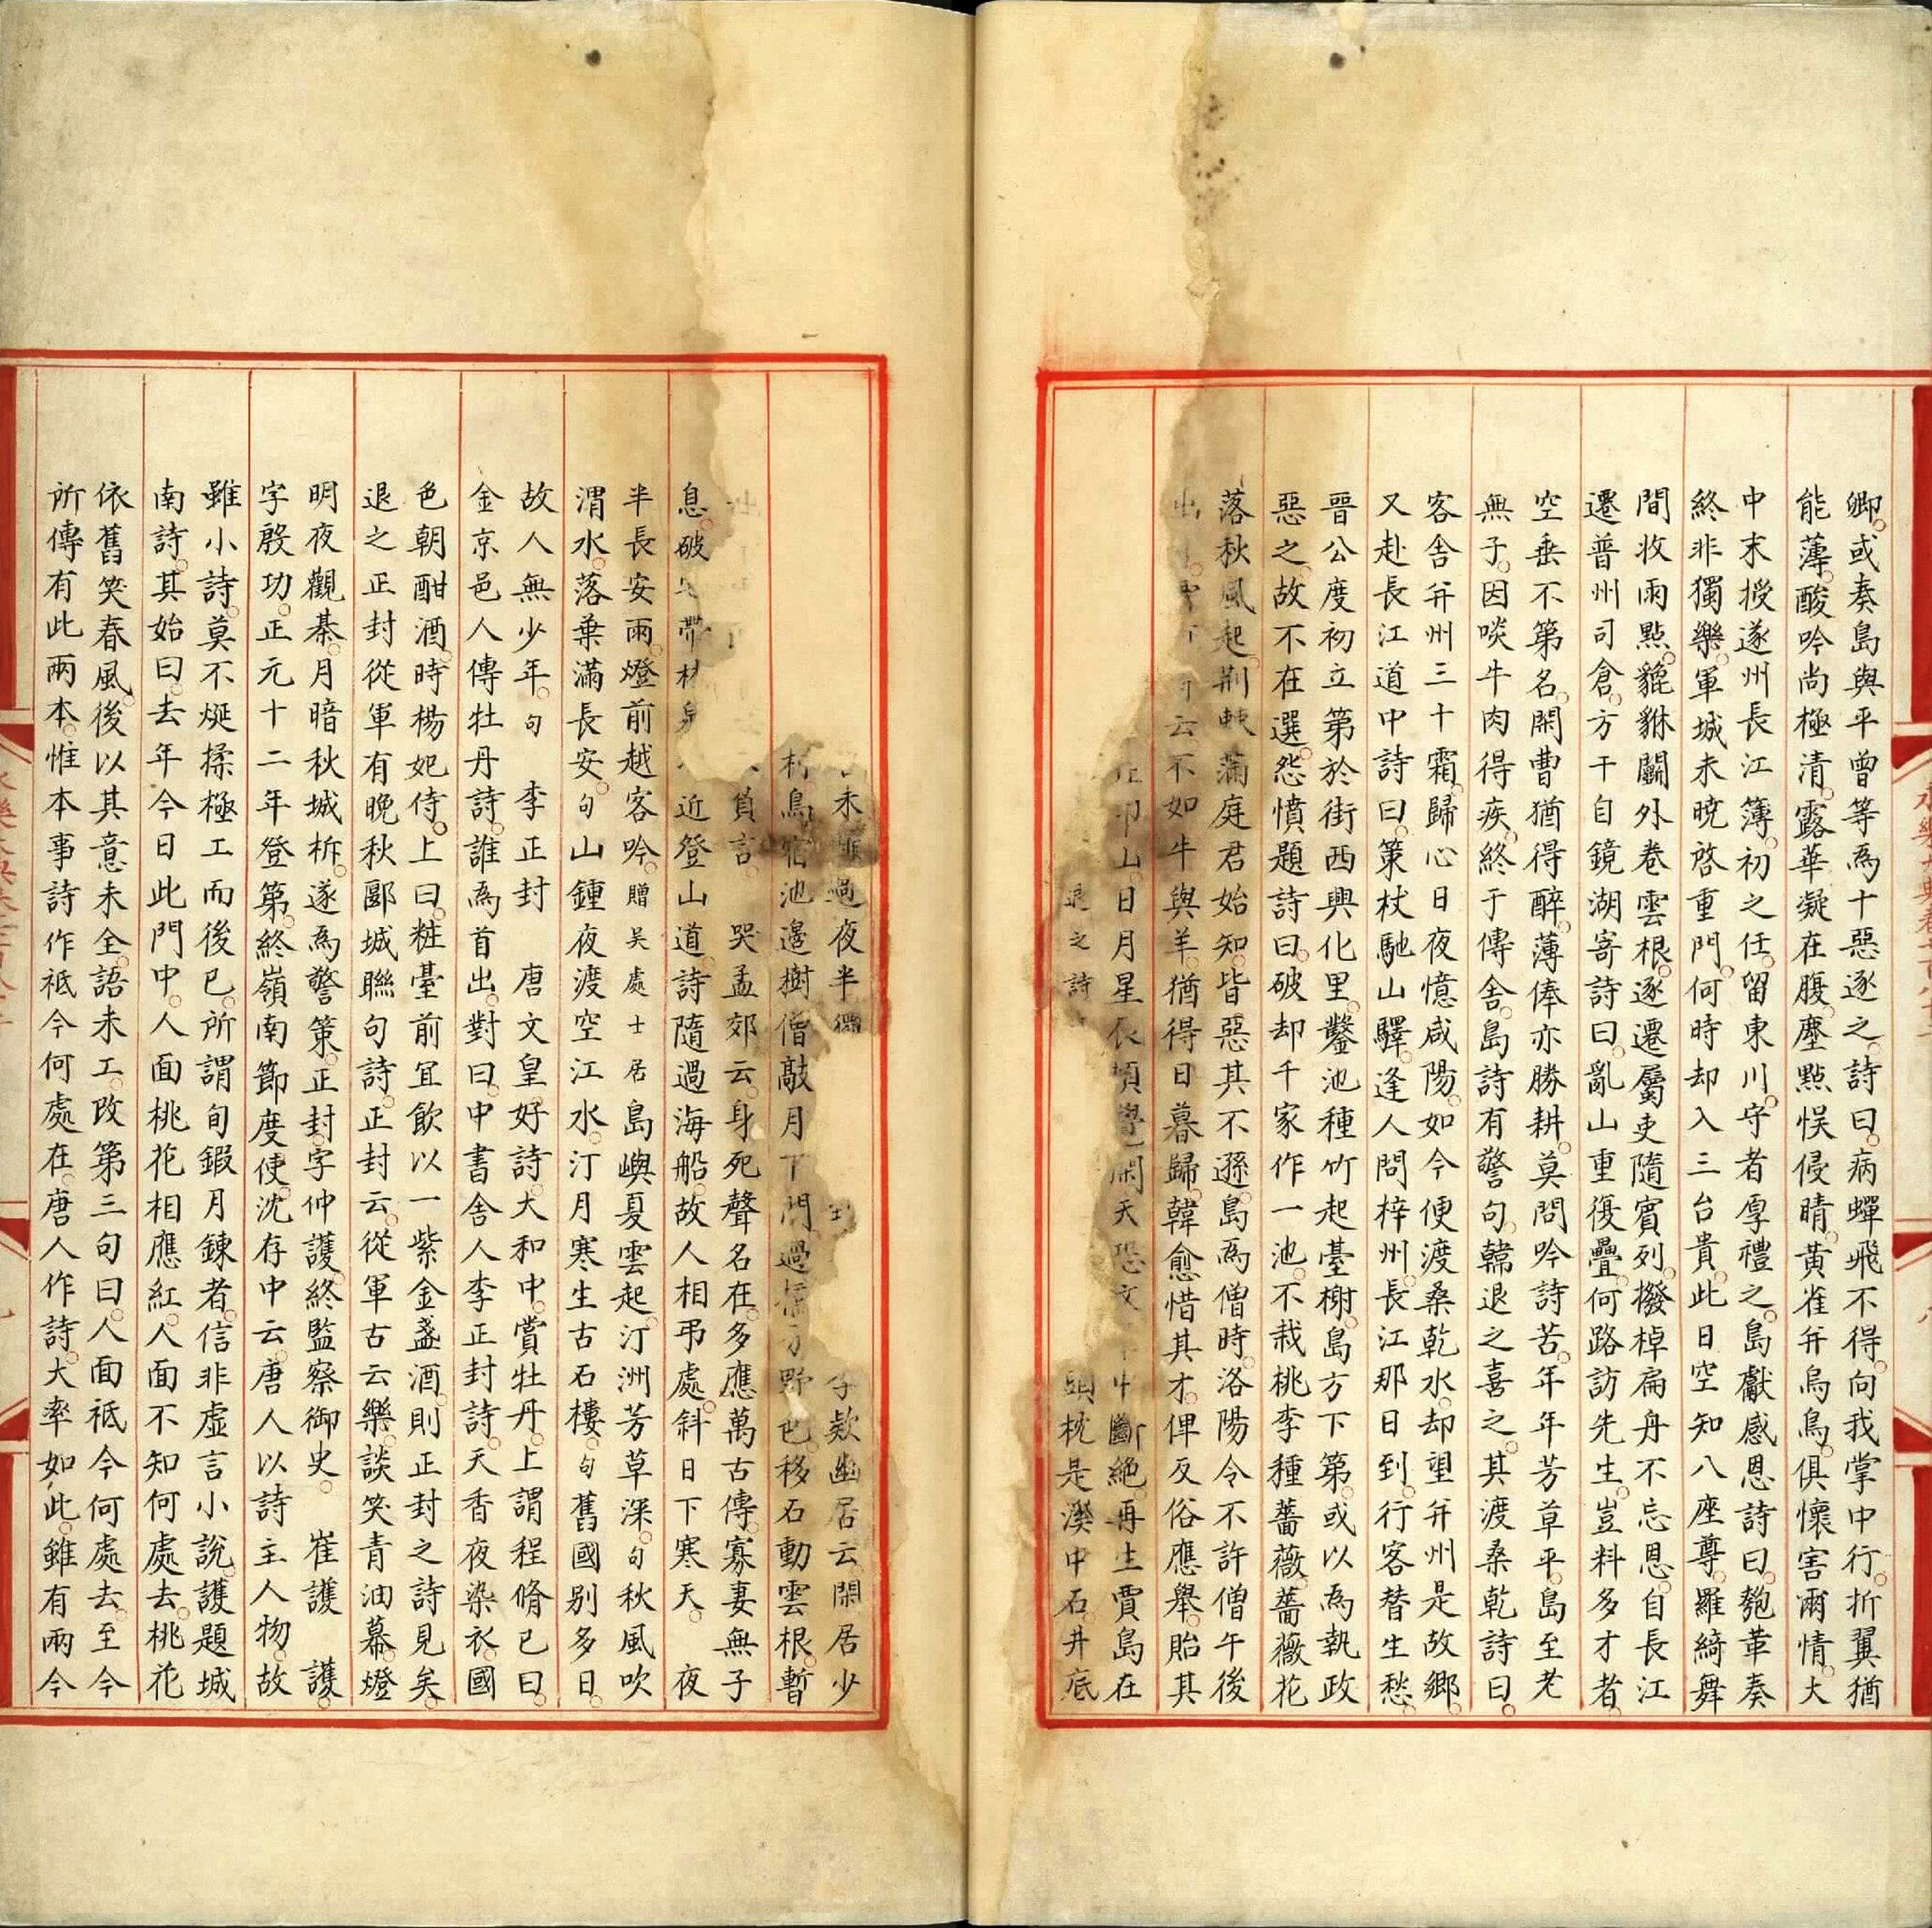 卿或奏島與平曾等為十惡逐之詩曰病蟬飛不得向我掌中行折翼猶
能薄酸吟尚極清露華凝在腹塵點悞侵睛黃雀并烏鳥俱懷害爾情大
中末授遂州長江簿初之任留東川守者厚禮之島獻感恩詩曰匏革奏
終非獨樂軍城未曉啓重門何時却入三台貴此日空知八座尊羅綺舞
間收雨點貔貅闘外卷雲根逐遷屬吏隨賓列撥棹扁舟不忘恩自長江
遷普州司倉方干自鏡湖寄詩曰亂山重復疊何路訪先生豈料多才者
空垂不第名閑曹猶得醉薄俸亦勝耕莫問吟詩苦年年芳草平島至老
無子因啖牛肉得疾終于傳舍島詩有警句韓退之喜之其渡桑乾詩曰
客舍并州三十霜歸心日夜憶咸陽如今便渡桑乾水却望并州是故鄉
又赴長江道中詩曰策杖馳山驛逢人問梓州長江那日到行客替生愁
晉公度初立第於街西興化里鑿池種竹起臺榭島方下第或以為執政
惡之故不在選怨憤題詩曰破却千家作一池不栽桃李種薔薇薔薇花
落秋風起荆棘滿庭君始知皆惡其不遜島為僧時洛陽令不許僧午後
出云不如牛與羊猶得日暮歸韓愈惜其才俾反俗應舉貽其
邙山日月星辰頓覺閑天恐文中斷絕再生賈島在
退之詩頭枕是溪中石井底
未過夜半獨子欵幽居云閑居少
鳥宿池邊樹僧敲月下門過橋分野色移石動雲根暫
負言哭孟郊云身死聲名在多應萬古傳寡妻無子
息破宅帶林泉近登山道詩隨過海船故人相弔處斜日下寒天夜
半長安雨燈前越客吟贈吳處士居島嶼夏雲起汀洲芳草深句秋風吹
渭水落葉滿長安句山鍾夜渡空江水汀月寒生古石樓句舊國别多日
故人無少年句李正封唐文皇好詩大和中賞牡丹上謂程脩已曰
金京邑人傳牡丹詩誰為首出對曰中書舍人李正封詩天香夜染衣國
色朝酣酒時楊妃侍上曰粧臺前冝飲以一紫金盞酒則正封之詩見矣
退之正封從軍有晚秋郾城聯句詩正封云從軍古云樂談笑青油幕燈
明夜觀棊月暗秋城柝遂為警策正封字仲護終監察御史崔護護
字殷功正元十二年登第終嶺南節度使沈存中云唐人以詩主人物故
雖小詩莫不埏揉極工而後已所謂旬鍜月鍊者信非虛言小說護題城
南詩其始曰去年今日此門中人面桃花相應紅人面不知何處去桃花
依舊笑春風後以其意未全語未工改第三句曰人面祗今何處去至今
所傳有此兩本惟本事詩作祗今何處在唐人作詩大率如此雖有兩今